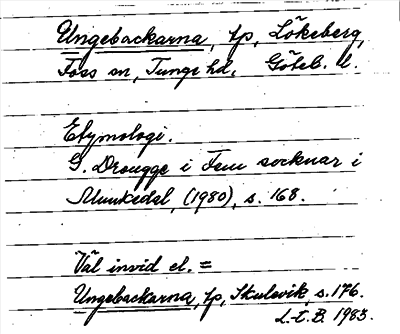 Ungebackarna, tp, Lökeberg,
Foss sn, Tunge hd, Göteb. l.
Etymologi.
G. Drougge i Fem socknar i
Munkedal, (1980), s. 168.
Väl invid el. =
Ungebackarna, tp, Skulevik, s. 176.
L-t. B. 1983.